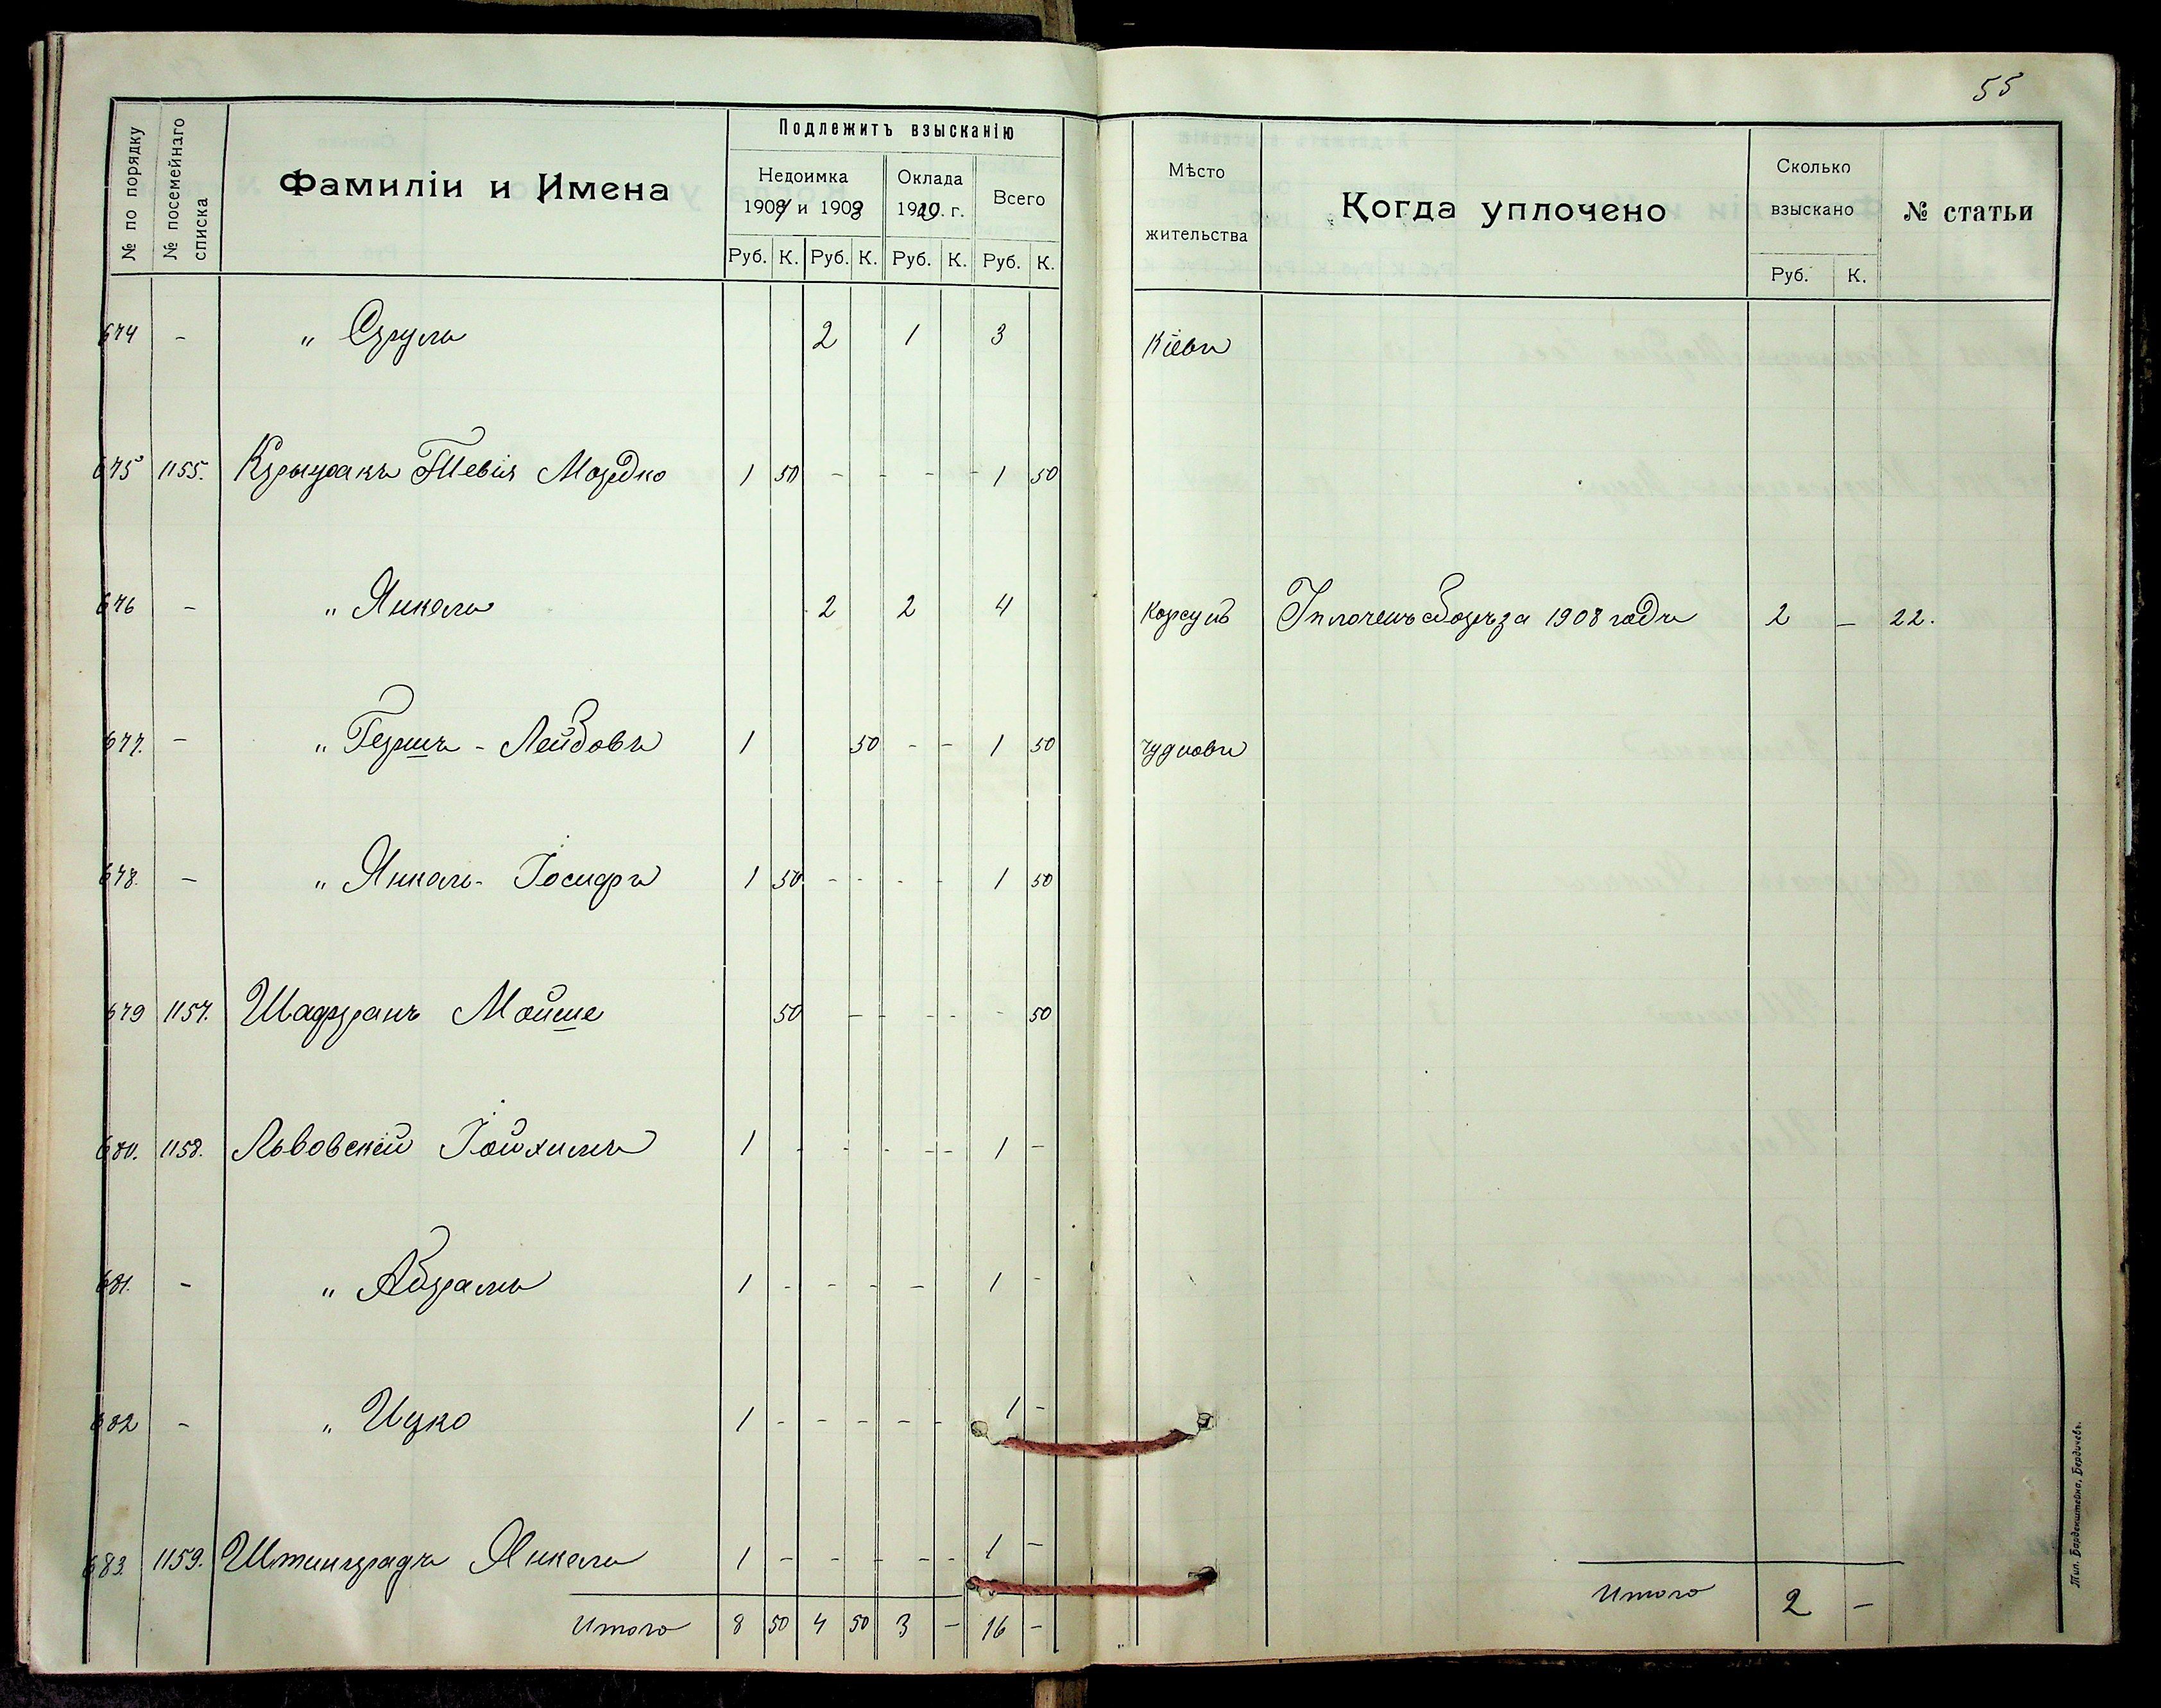 55
№ по порядку
№ посемейнаго списка
Фамиліи и Имена
Подлежитъ взысканію
Недоимка
1908 и 1909
Оклада
1910. г.
Всего
Руб. К. Руб. К. Руб. К. Руб. К.
Мѣсто
жительства
Когда уплочено
Сколько
взыскано
Руб. К.
№ статьи
674 - " Сруль 2 1 3 Кіевъ
675 1155. Тевія Мордко 1 50 - - - - 1 50
676 - " Янкель 2 2 4 Корсунь Уплоченъ сборъ за 1908 годъ 2 - 22.
677. - " Гершъ - Лейбовъ 1 50 - - 1 50 Чудновъ
678. - " Янкель - Іосифъ 1 50 - - - - 1 50
679 1157. Шафранъ Мойше 50 - - - - - 50
680. 1158. Львовскій Іойхимъ 1 - - - - - 1 -
681. - " Абрамъ 1 - - - - 1 -
682 - " Ицко 1 - - - - - 1 -
683. 1159. Штинградъ Янкель 1 - - - - - 1 -
Итого 8 50 4 50 3 - 16 -
Итого 2 -
Тип. Барденштейна, Бердичевъ.